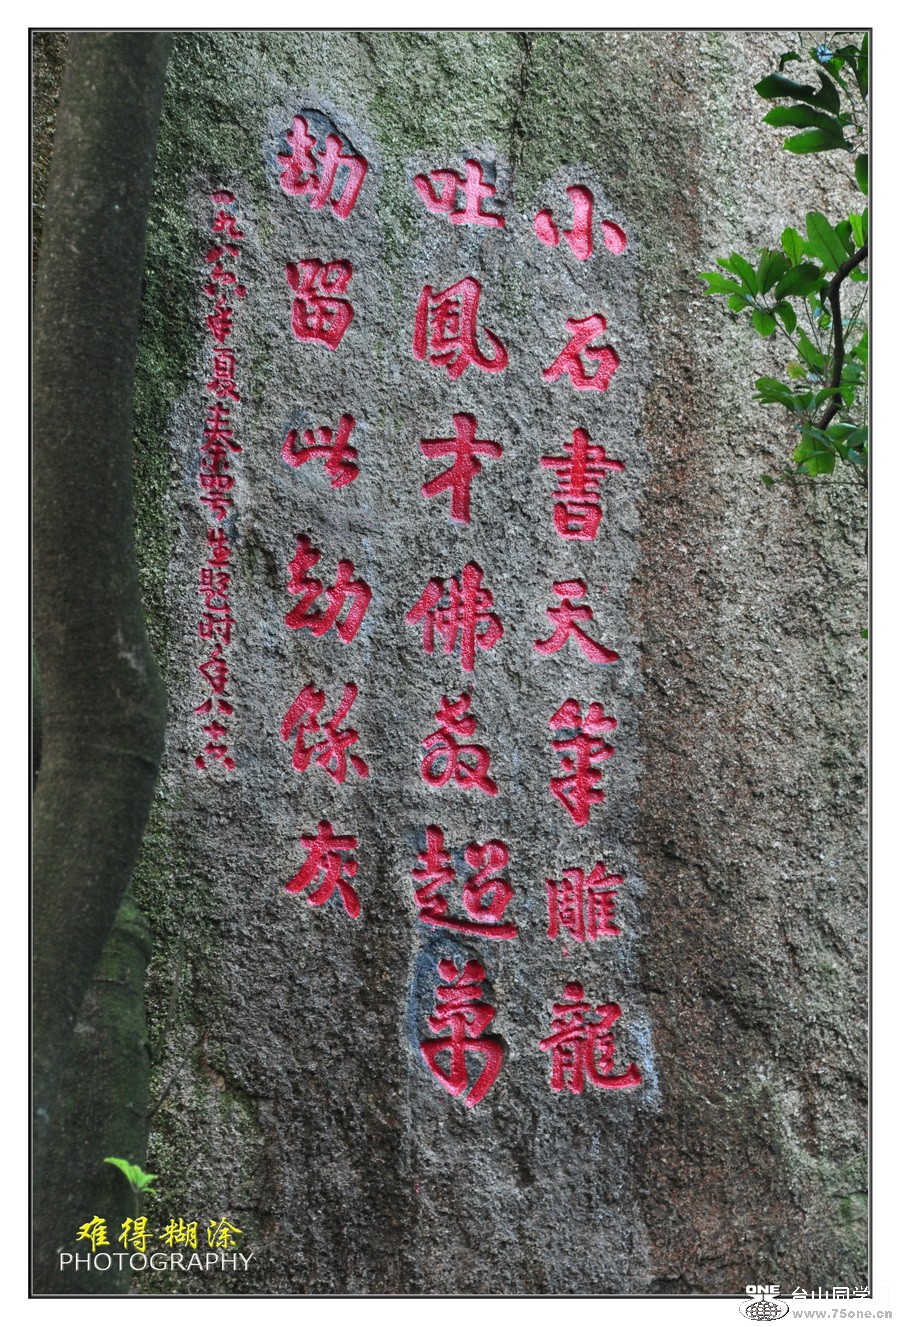 小石書天筆雕龍
吐鳳才佛超
劫留此劫餘灰
一九八六年夏題時年八十六
难得糊涂
PHOTOGRAPHY
ONE 台山同学
www.75one.cn